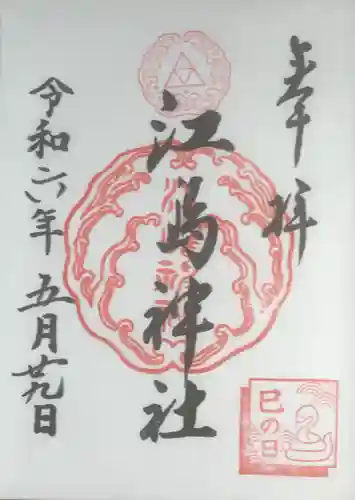 奉拝
江島神社
令和六年五月廿九日
巳の日